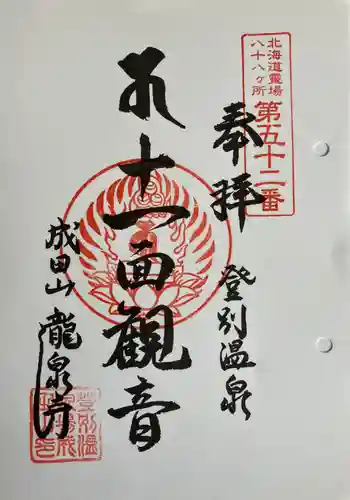 北海道霊場
八十八ヶ所
第五十二番
奉拝
登別温泉
十一面観音
成田山 龍泉寺